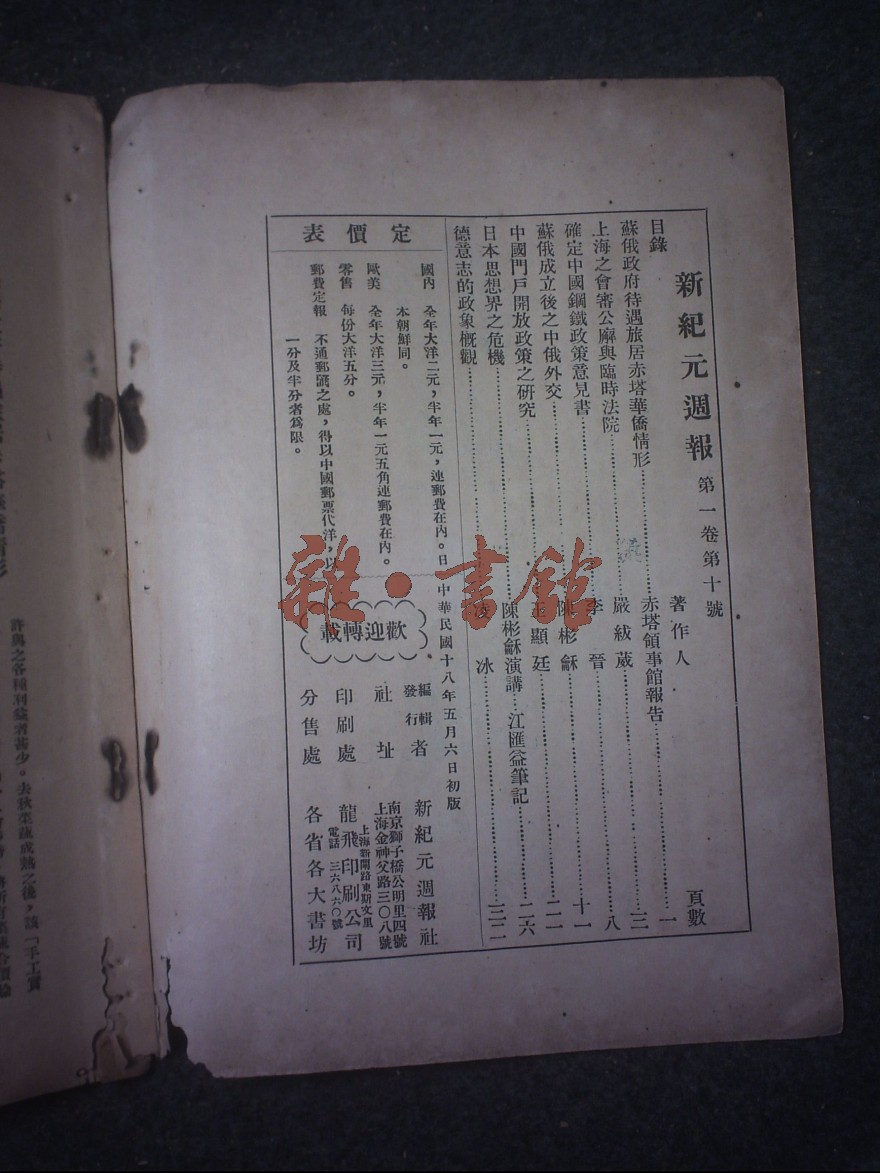 新紀元週報 第一卷第十號
目錄 著作人 頁數
蘇俄政府待遇旅居赤塔華僑情形 赤塔領事館報告 一
上海之會審公廨與臨時法院 嚴紱葳 三
確定中國鋼鐵政策意見書 李晉 八
蘇俄成立後之中俄外交 陳彬龢 十一
中國門戶開放政策之研究 王顯廷 二一
日本思想界之危機 陳彬龢演講 江匯益筆記 二六
德意志的政象概觀 凌冰 三二
定價表
國內 全年大洋二元,半年一元,連郵費在內。日
本朝鮮同。
歐美 全年大洋三元,半年一元五角連郵費在內。
零售 每份大洋五分。
郵費定報 不通郵滙之處,得以中國郵票代洋,以
一分及半分者爲限。
中華民國十八年五月六日初版
歡迎轉載
編輯發行者 新紀元週報社
社址 南京獅子橋公明里四號
上海金神父路三〇八號
印刷處 上海新閘路東斯文里
龍飛印刷公司
電話 三六八六〇號
分售處 各省各大書坊
雜·書館
許與之各種利益者甚少。去秋菜蔬成熟之後,該「手工實